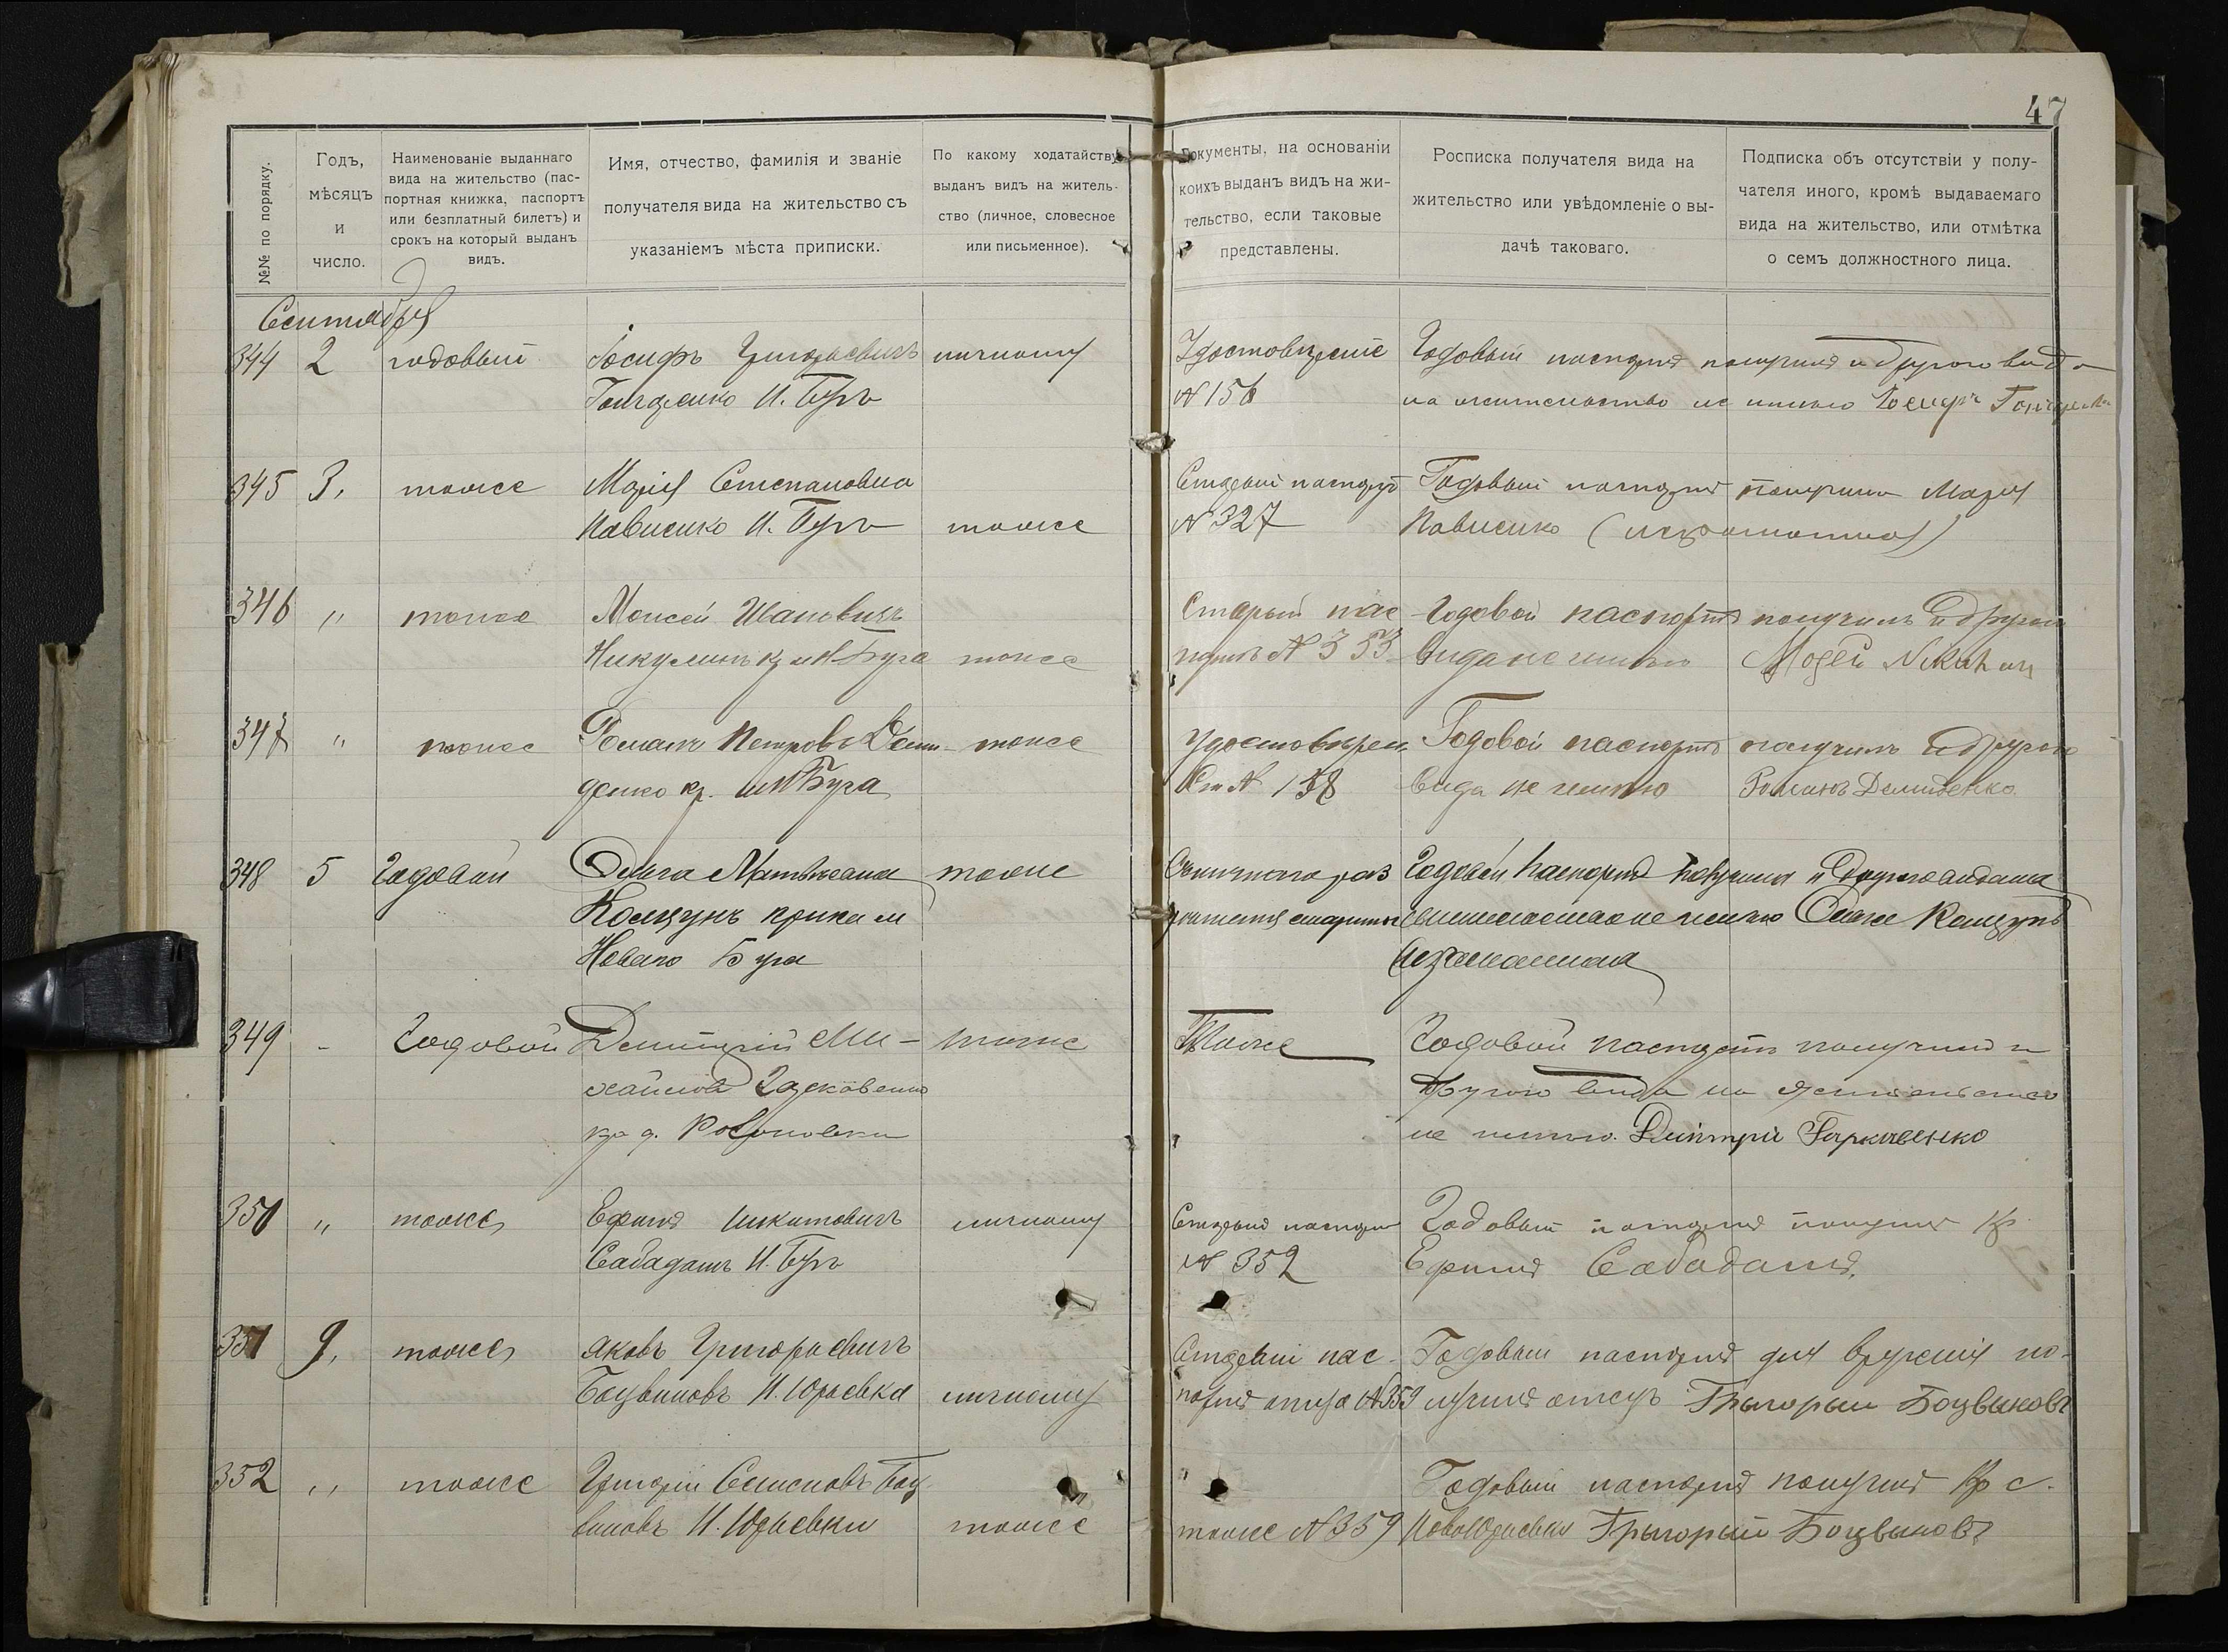 47
№№ по порядку.
Годъ,
мѣсяцъ
и
число.
Наименованіе выданнаго
вида на жительство (пас-
портная книжка, паспортъ
или безплатный билетъ) и
срокъ на который выданъ
видъ.
Имя, отчество, фамилія и званіе
получателя вида на жительство съ
указаніемъ мѣста приписки.
По какому ходатайству
выданъ видъ на житель-
ство (личное, словесное
или письменное).
Документы, на основаніи
коихъ выданъ видъ на жи-
тельство, если таковые
представлены.
Росписка получателя вида на
жительство или увѣдомленіе о вы-
дачѣ таковаго.
Подписка объ отсутствіи у полу-
чателя иного, кромѣ выдаваемаго
вида на жительство, или отмѣтка
о семъ должностного лица.
Сентября
344 2 годовый Іосифъ Григорьевичъ личному
Гончаренко Н. Бугъ
Удостовѣреніе
№ 156
Годовый паспортъ получилъ и другого вида
на жительство не имѣю Іосифъ
345 3, тоже Марія Степановна
Н. Бугъ тоже
Старый паспортъ
№ 327
Годовый паспортъ получила Марія
(неграмотная)
346 " тоже Моисей Ивановичъ
Никулинъ кр. м Н Буга тоже
Старый пас
портъ № 353
Годовой паспортъ получилъ и другого
вида не имѣю
347 " тоже Романъ Петровъ Деми- тоже
денко кр. м Н Буга
Удостовѣрен
№ 158
Годовой паспортъ получилъ и другого
вида не имѣю Романъ Демиденко
348 5 Годовой Ольга Матвѣевна тоже
м
Новаго Буга
Годовой паспортъ получила и другого вида на
не имѣю
349 - Годовой Дмитрій Ми- тоже
хайловъ Гарькавенко
кр д.
Тоже
Годовой паспортъ получилъ и
другого вида на жительство
не имѣю. Дмитрій Гаркавенко
350 " тоже Ефимъ Никитовичъ личному
Сабадашъ Н. Бугъ
Старый паспортъ
№ 352
Годовый паспортъ получилъ Кр
Ефимъ Сабадашъ.
351 9, тоже Яковъ Григорьевичъ
Боцвиновъ Н. Юрьевка личному
Старый пас-
портъ отца № 359
Годовый паспортъ для врученія по-
лучилъ отецъ Грыгорый Боцвыновъ
352 " тоже Григорій Семеновъ Боц-
виновъ Н. Юрьевки тоже
тоже № 359
Годовый паспортъ получилъ Кр с.
НовоЮрьевки Грыгорый Боцвыновъ